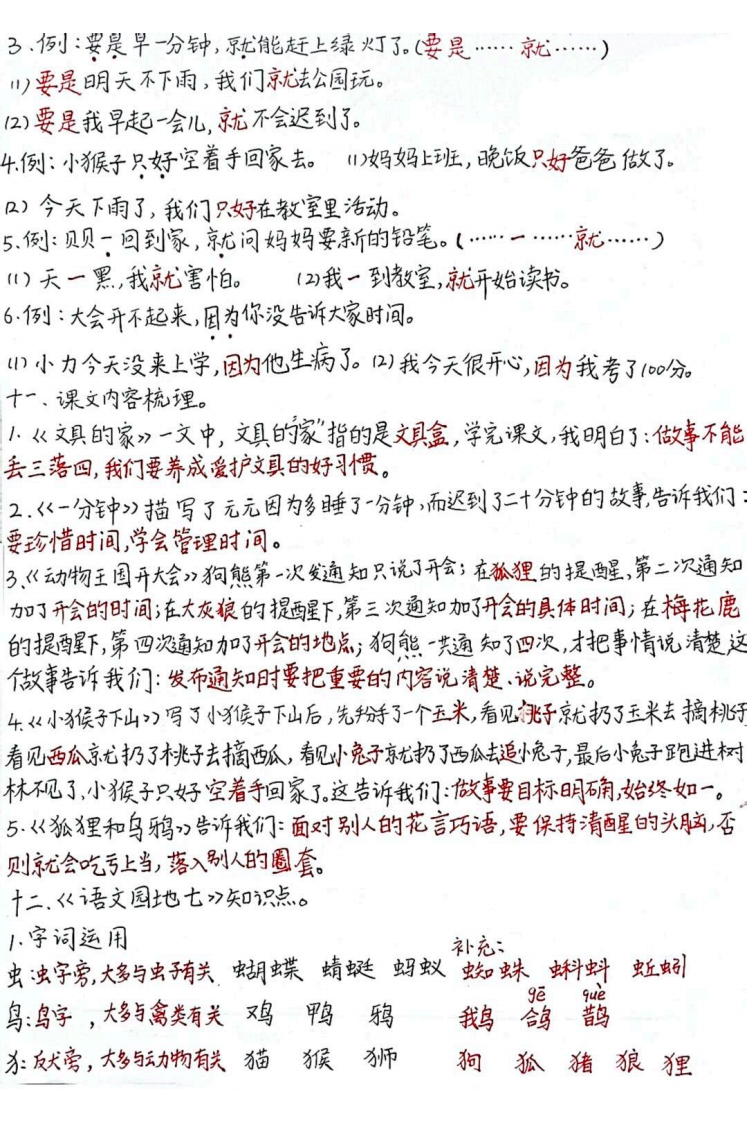 3.例:要是早一分钟,就能赶上绿灯了。(要是……就……)
(1)要是明天不下雨,我们就去公园玩。
(2)要是我早起一会儿,就不会迟到了。
4.例:小猴子只好空着手回家去。 (1)妈妈上班,晚饭只好爸爸做了。
(2)今天下雨了,我们只好在教室里活动。
5.例:贝贝一回到家,就问妈妈要新的铅笔。(……一……就……)
(1)天一黑,我就害怕。 (2)我一到教室,就开始读书。
6.例:大会开不起来,因为你没告诉大家时间。
(1)小力今天没来上学,因为他生病了。(2)我今天很开心,因为我考了100分。
十一、课文内容梳理。
1.《文具的家》一文中,文具的“家”指的是文具盒,学完课文,我明白了:做事不能
丢三落四,我们要养成爱护文具的好习惯。
2.《一分钟》描写了元元因为多睡了一分钟,而迟到了二十分钟的故事,告诉我们:
要珍惜时间,学会管理时间。
3.《动物王国开大会》狗熊第一次发通知只说了开会;在狐狸的提醒,第二次通知
加了开会的时间;在大灰狼的提醒下,第三次通知加了开会的具体时间;在梅花鹿
的提醒下,第四次通知加了开会的地点;狗熊一共通知了四次,才把事情说清楚,这
个故事告诉我们:发布通知时要把重要的内容说清楚、说完整。
4.《小猴子下山》写了小猴子下山后,先掰了一个玉米,看见桃子就扔了玉米去摘桃子
看见西瓜就扔了桃子去摘西瓜,看见小兔子就扔了西瓜去追小兔子,最后小兔子跑进树
林不见了,小猴子只好空着手回家了。这告诉我们:做事要目标明确,始终如一。
5.《狐狸和乌鸦》告诉我们:面对别人的花言巧语,要保持清醒的头脑,否
则就会吃亏上当,落入别人的圈套。
十二、《语文园地七》知识点。
1.字词运用 补充:
虫:虫字旁,大多与虫子有关 蝴蝶 蜻蜓 蚂蚁 蜘蛛 蝌蚪 蚯蚓
gē què
鸟:鸟字,大多与禽类有关 鸡 鸭 鸦 鹅 鸽 鹊
犭:反犬旁,大多与动物有关 猫 猴 狮 狗 狐 猪 狼 狸